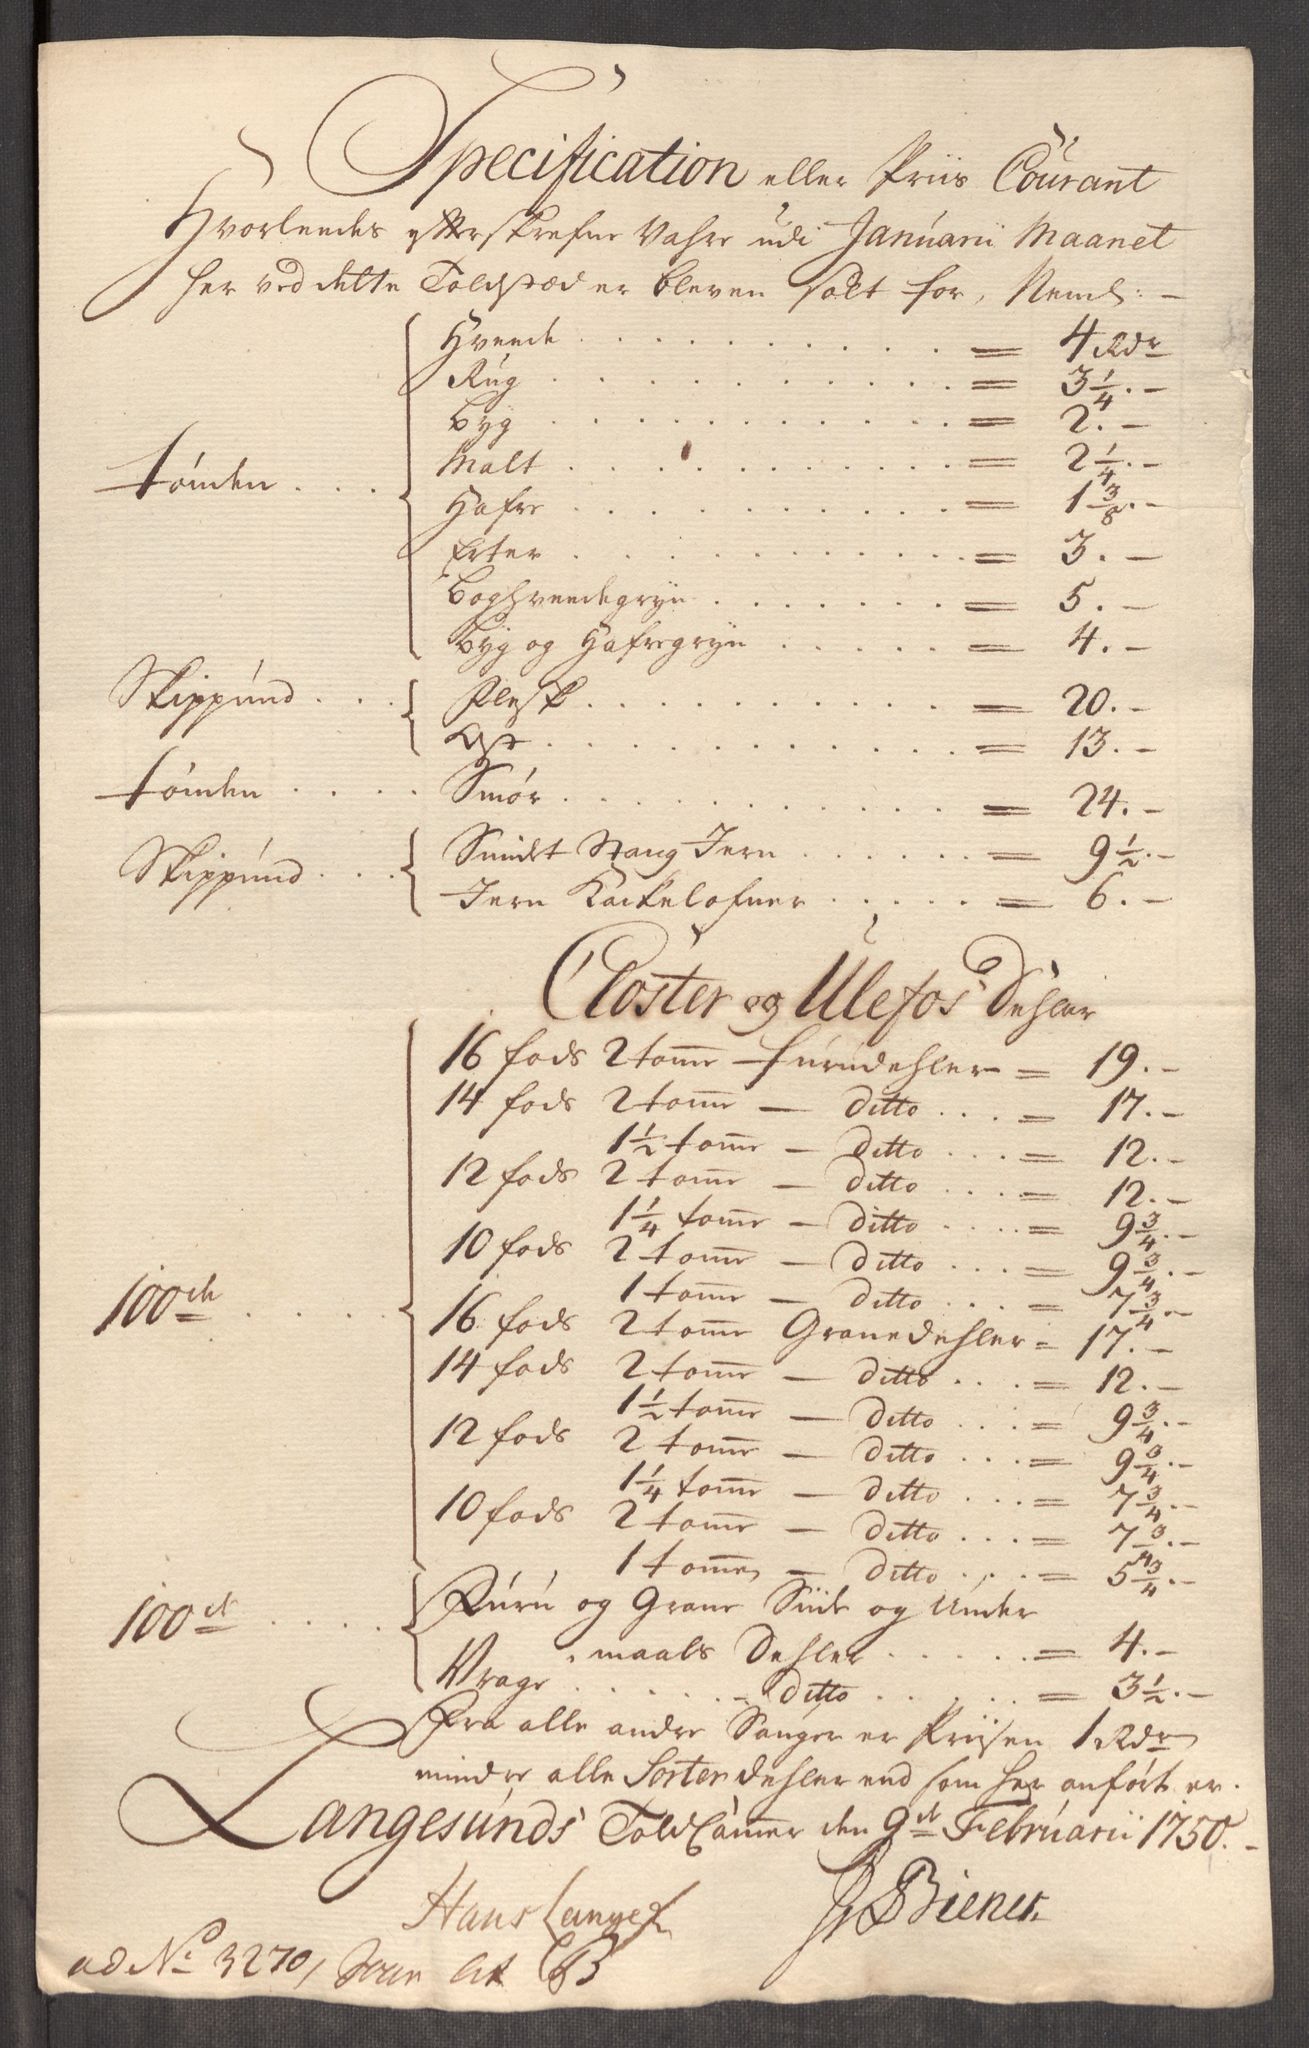 Specification eller Priis Courant
Hvorleedes efterskrefne Vahre udi Januarii Maanet
her ved dette Toldstæd er bleven solt for, Neml: -
Hveede = 4 Rdr
Rug = 3 1/4. -
Byg = 2. -
Malt = 2 1/4. -
Tønden
Hafre = 1 3/8. -
Erter = 3. -
Boghveedegryn = 5. -
Byg og Hafregryn = 4. -
Skippund
Flesk = 20. -
Ost = 13. -
Tønden Smør = 24. -
Smidet Stang Jern = 9 1/2. -
Skippund
Jern Kackelofner = 6. -
Closter og Ulefos Dehler
16 fods 2 tomr Furudehler = 19. -
14 fods 2 tomr - ditto = 17. -
1 1/2 tomr - ditto = 12. -
12 fods 2 tomr - ditto = 12. -
1 1/4 tomr - ditto = 9 3/4. -
10 fods 2 tomr - ditto = 9 3/4. -
100de
1 tomr - ditto = 7 3/4. -
16 fods 2 tomr Granedehler = 17. -
14 fods 2 tomr - ditto = 12. -
1 1/2 tomr - ditto = 9 3/4. -
12 fods 2 tomr - ditto = 9 3/4. -
1 1/4 tomr - ditto = 7 3/4. -
10 fods 2 tomr - ditto = 7 3/4. -
1 tomr - ditto = 5 3/4. -
100de
Furu og Grane Siide og Under
maals Dehler = 4. -
Vrage - ditto = 3 1/2. -
Fra alle andre Sauger er Priisen 1 Rdr
mindre alle Sorter dehler end som her anført er.
Langesunds Toldcamer den 9de Februarii 1750. -
Hans Lange JS Biener
ad No 3270